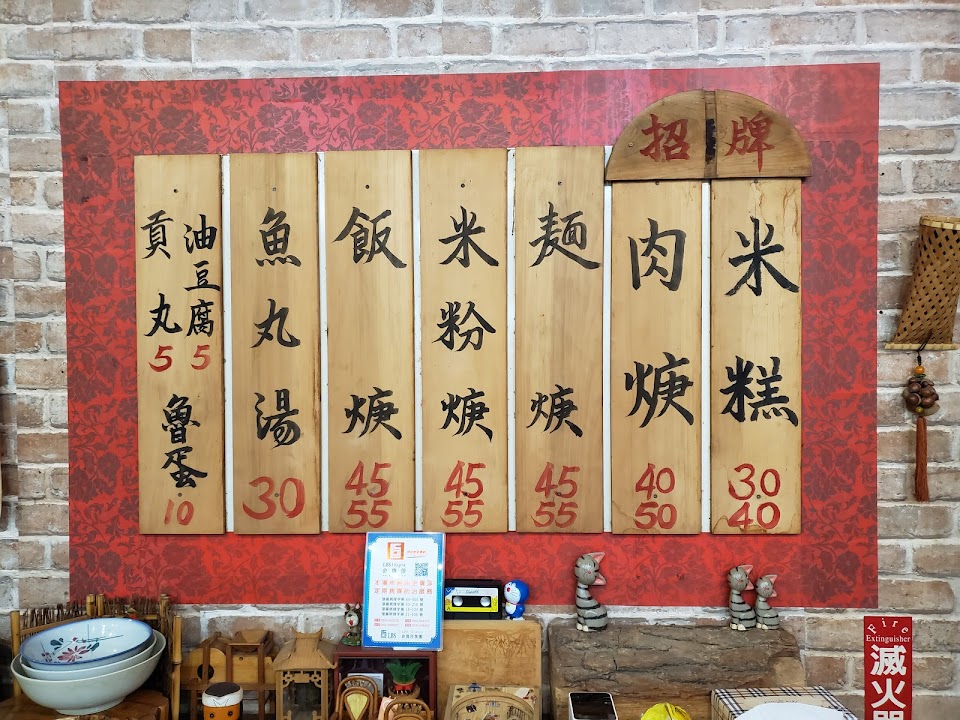 招牌
米糕
30
40
肉焿
40
50
麵焿
45
55
米粉焿
45
55
飯焿
45
55
魚丸湯
30
油豆腐
5
貢丸
5
魯蛋
10
Fire
Extinguisher
滅火